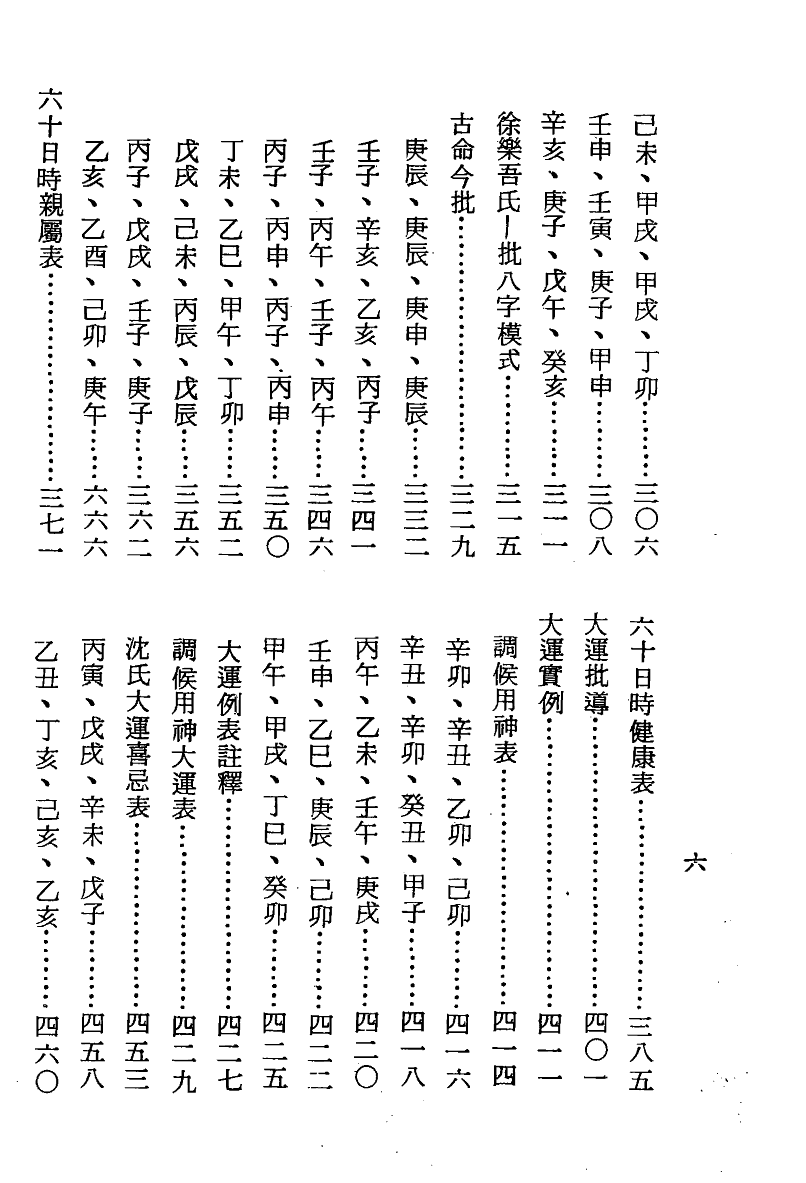 己未、甲戌、甲戌、丁卯…………三〇六
壬申、壬寅、庚子、甲申…………三〇八
辛亥、庚子、戊午、癸亥…………三一一
徐樂吾氏—批八字模式…………三一五
古命今批…………三二九
庚辰、庚辰、庚申、庚辰…………三三二
壬子、辛亥、乙亥、丙子…………三四一
壬子、丙午、壬子、丙午…………三四六
丙子、丙申、丙子、丙申…………三五〇
丁未、乙巳、甲午、丁卯…………三五二
戊戌、己未、丙辰、戊辰…………三五六
丙子、戊戌、壬子、庚子…………三六二
乙亥、乙酉、己卯、庚午…………六六六
六十日時親屬表…………三七一
六十日時健康表…………三八五
大運批導…………四〇一
大運實例…………四一一
調候用神表…………四一四
辛卯、辛丑、乙卯、己卯…………四一六
辛丑、辛卯、癸丑、甲子…………四一八
丙午、乙未、壬午、庚戌…………四二〇
壬申、乙巳、庚辰、己卯…………四二二
甲午、甲戌、丁巳、癸卯…………四二五
大運例表註釋…………四二七
調候用神大運表…………四二九
沈氏大運喜忌表…………四五三
丙寅、戊戌、辛未、戊子…………四五八
乙丑、丁亥、己亥、乙亥…………四六〇
六